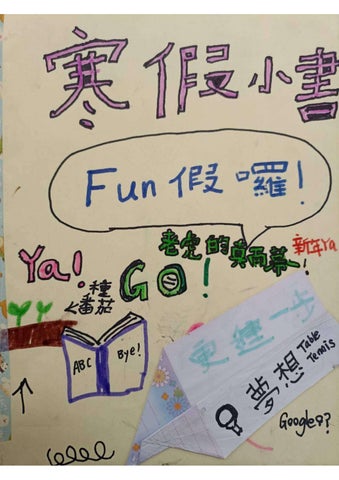 寒假小書
Fun假囉!
老定的真面幕!
新年Ya
Ya!
GO!
種
番茄
ABC
Bye!
更進一步
夢想
Table
Tennis
Google??